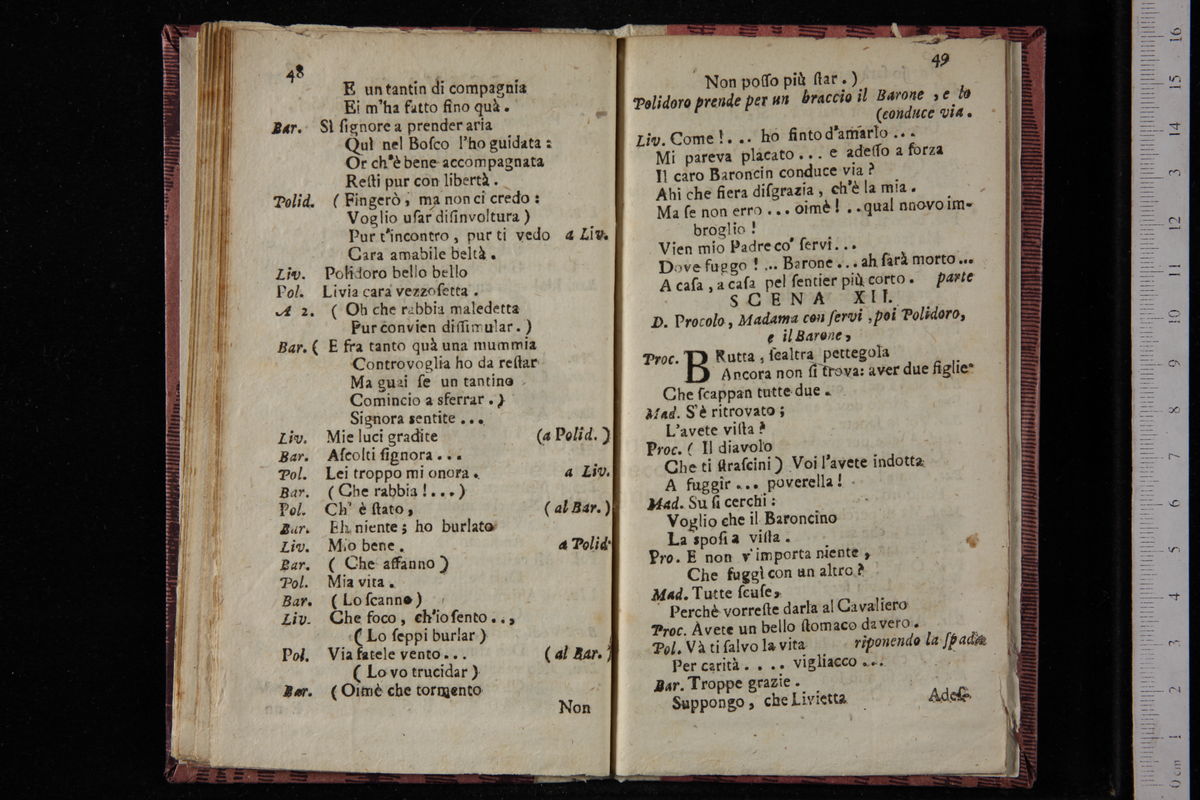 48
E un tantin di compagnia
Ei m'ha fatto fino quà.
Bar. Sì ſignore a prender aria
Quì nel Boſco l'ho guidata:
Or ch'è bene accompagnata
Reſti pur con libertà.
Polid. (Fingerò, ma non ci credo:
Voglio uſar diſinvoltura)
Pur t'incontro, pur ti vedo a Liv.
Cara amabile beltà.
Liv. Polidoro bello bello
Pol. Livia cara vezzoſetta.
A 2. (Oh che rabbia maledetta
Pur convien diſſimular.)
Bar. (E fra tanto quà una mummia
Controvoglia ho da reſtar
Ma guai ſe un tantino
Comincio a sferrar.)
Signora sentite ...
Liv. Mie luci gradite (a Polid.)
Bar. Aſcolti ſignora ...
Pol. Lei troppo mi onora. a Liv.
Bar. (Che rabbia! ...)
Pol. Ch' è ſtato, (al Bar.)
Bar. Eh niente; ho burlato
Liv. Mio bene. a Polid.
Bar. (Che affanno)
Pol. Mia vita.
Bar. (Lo ſcanno)
Liv. Che foco, ch'io ſento ..,
(Lo ſeppi burlar)
Pol. Via fatele vento ... (al Bar.)
(Lo vo trucidar)
Bar. (Oimè che tormento
Non
49
Non poſſo più ſtar.)
Polidoro prende per un braccio il Barone, e lo
(conduce via.
Liv. Come! ... ho finto d'amarlo ...
Mi pareva placato ... e adeſſo a forza
Il caro Baroncin conduce via?
Ahi che fiera diſgrazia, ch'è la mia.
Ma ſe non erro ... oimè! ..qual nnovo im-
broglio!
Vien mio Padre co' ſervi...
Dove fuggo! ... Barone ... ah ſarà morto ...
A caſa, a caſa pel ſentier più corto. parte
SCENA XII.
D. Procolo, Madama con ſervi, poi Polidoro,
e il Barone,
Proc. BRutta, ſcaltra pettegola
Ancora non ſi trova: aver due figlie
Che ſcappan tutte due.
Mad. S'è ritrovato;
L'avete viſta?
Proc. (Il diavolo
Che ti ſtraſcini) Voi l'avete indotta
A fuggir ... poverella!
Mad. Su ſi cerchi:
Voglio che il Baroncino
La spoſi a viſta.
Pro. E non v'importa niente,
Che fuggì con un altro?
Mad. Tutte ſcuſe,
Perchè vorreſte darla al Cavaliero
Proc. Avete un bello ſtomaco davero.
Pol. Và ti ſalvo la vita riponendo la ſpada
Per carità .... vigliacco ...
Bar. Troppe grazie.
Suppongo, che Livietta
Adeſ-